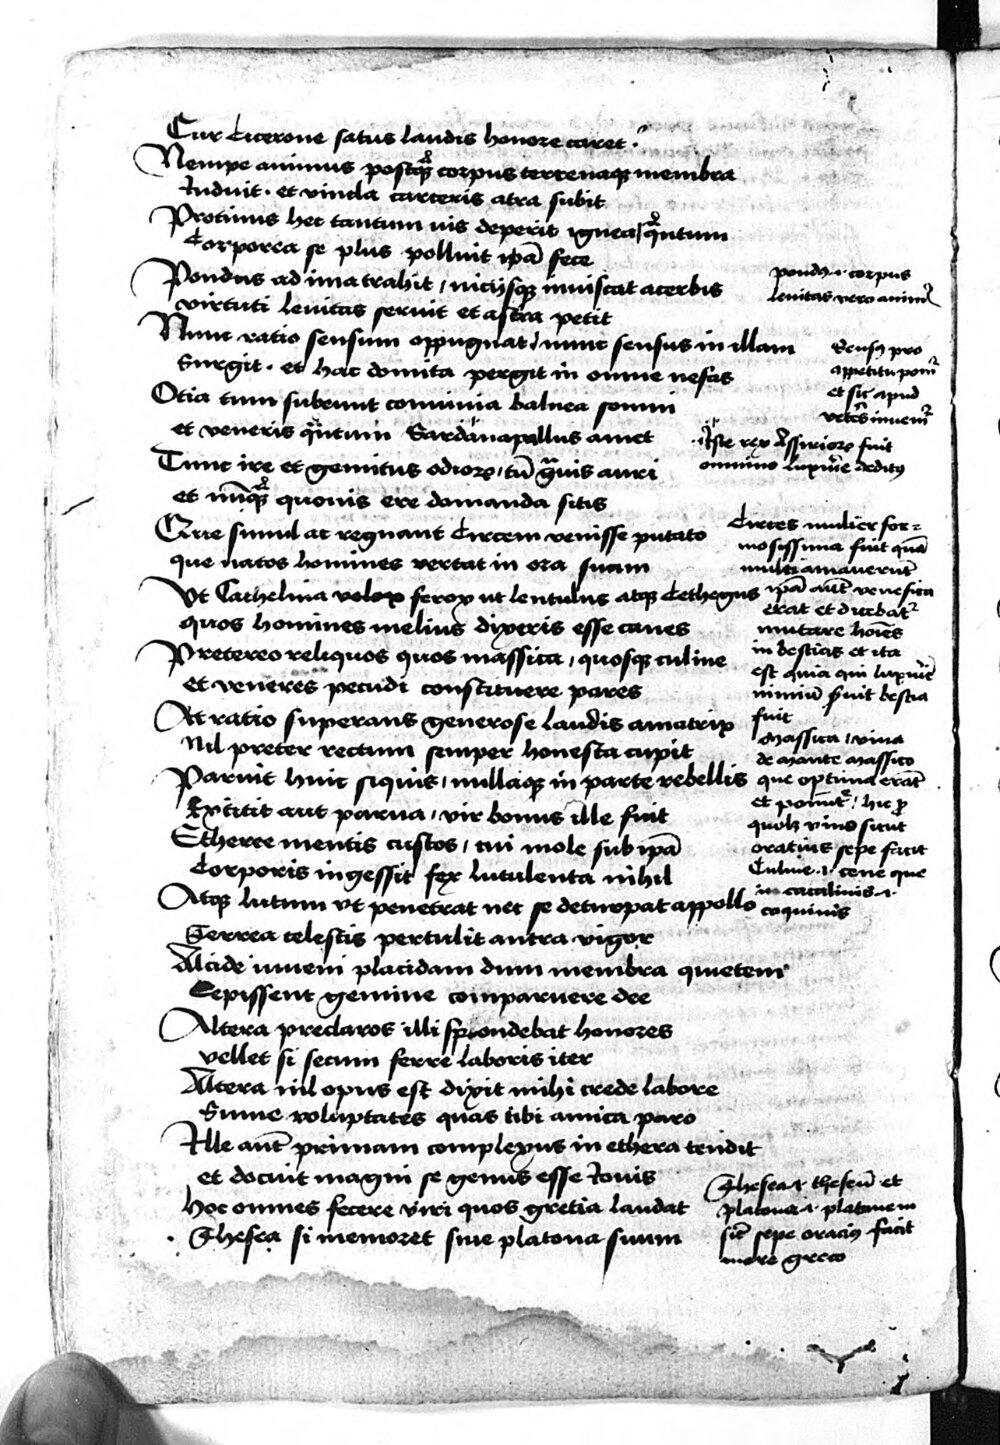 Cur Cicerone satus laudis honore caret ·
Nempe animus postq̃ꝫ corpus terrenaqꝫ membra
Induit · et vincla carceris atra subit
Protinus hec tantum uis deperit ignea / q̃ntum
Corporea se plus polluit ip̃a fece
Pondus ad ima trahit / uicijsqꝫ inuiscat acerbis
virtuti leuitas seruit et astra petit
Nunc ratio sensum oppugnat / nunc sensus in illam
Surgit · et hac domita pergit in omne nefas
Otia tum subeunt conuiuia balnea somni
et veneris q̃ntum Sardanapallus amet
Tunc ire et gemitus odioꝝ / tũ g̃uis auri
et nũq̃ꝫ quouis ere domanda sitis
Que simul ac regnant Circem venisse putato
que natos homines vertat in ora suum
Vt Cathelina velox ferox ut lentulus atqꝫ Cethegus
quos homines melius dixeris esse canes
Pretereo reliquos quos massica / quosqꝫ culine
et veneres pecudi constituere pares
At ratio superans generose laudis amatrix
Nil preter rectum semper honesta cupit
Paruit huic siquis / nullaqꝫ in parte rebellis
Extitit aut parua / vir bonus ille fuit
Etheree mentis custos / cui mole sub ip̃a
Corporis ingessit fex lutulenta nihil
Atqꝫ lutum vt penetrat nec se deturpat appollo
Terrea celestis pertulit antra vigor
Alcide iuueni placidam dum membra quietem
Cepissent gemine comparuere dee
Altera preclaros illi spondebat honores
vellet si secum ferre laboris iter
Altera nil opus est dixit mihi crede labore
Sume voluptates quas tibi amica paro
Ille aut̃ primam complexus in ethera tendit
et docuit magni se genus esse Iouis
Hoc omnes fecere viri quos gretia laudat
Thesea si memoret siue platona suum
pondꝰ · i · corpus
leuitas vero animi
Sensꝰ pro
appetitu poni᷑
et sic apud
vetẽs inueni᷑
Iste rex Assirioꝝ fuit
omnino luxurie deditꝰ
Circes mulier for=
mosissima fuit quã
multi amauerunt
ip̃a aut̃ venefica
erat et dicebat᷑
mutare hoĩes
in bestias et ita
est quia qui luxurie
nimiũ s̃uit bestia
fuit
Massica / vina
de monte Massico
que optima erãt
et ponit᷑ / hic ꝓ
quolꝫ vino sicut
oratius sepe facit
Culine · i · cene que
in · i ·
coquinis
Thesea · i · theseũ et
platona · i · platonem
sic̃ sepe oraciꝰ facit
more greco